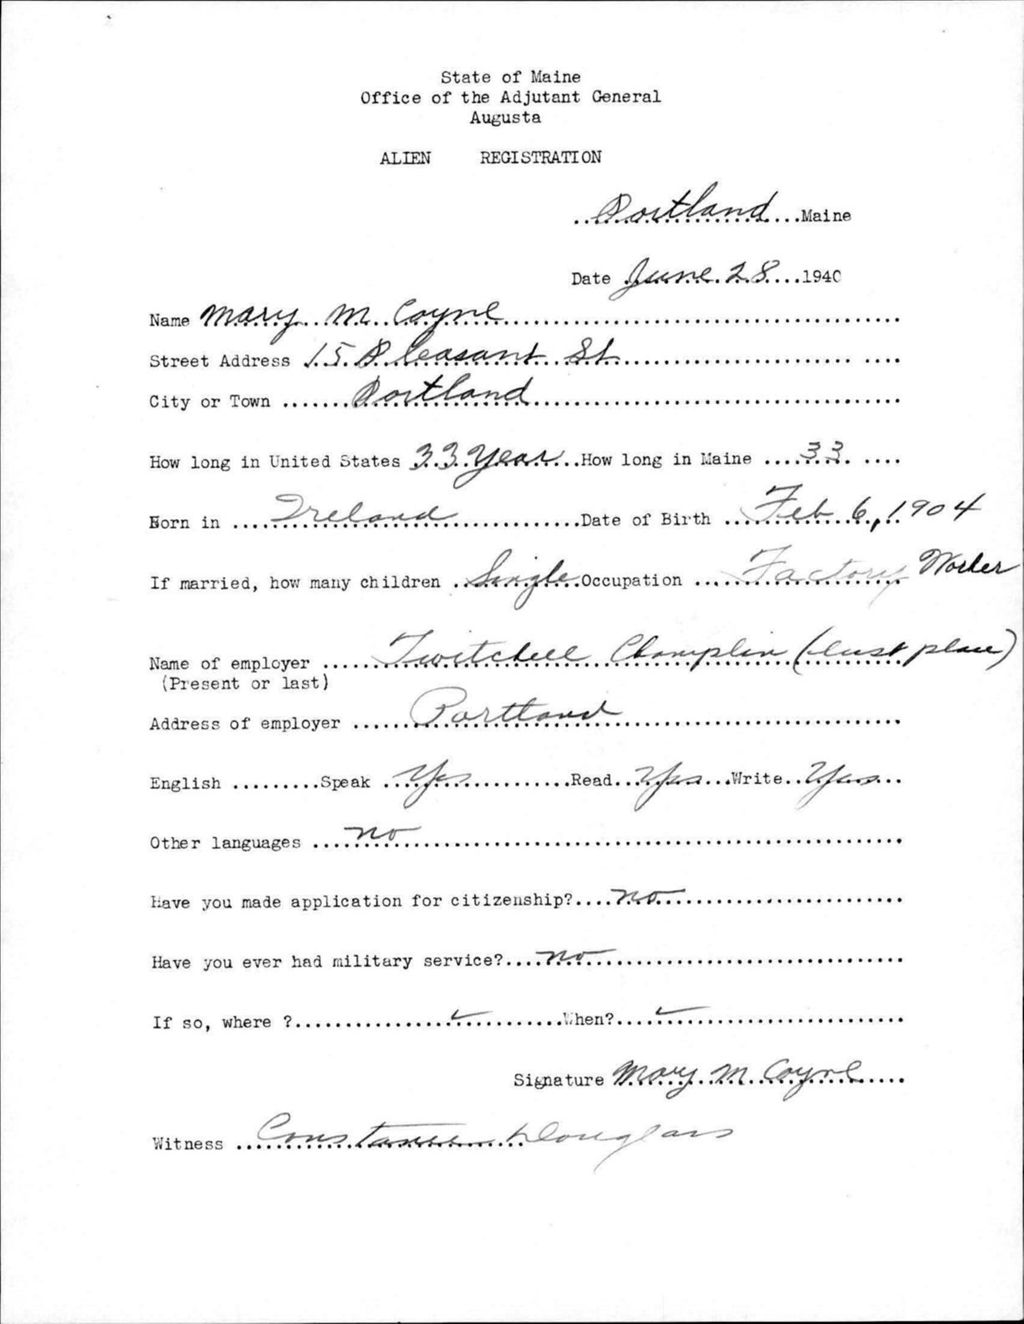 State of Maine
Office of the Adjutant General
Augusta
ALIEN REGISTRATION
Portland Maine
Date June 28 1940
Name Mary M Coyne
Street Address 15 Pleasant St
City or Town Portland
How long in United States 33 Year How long in Maine 33
Born in Ireland Date of Birth Feb 6, 1904
If married, how many children Single Occupation Factory Worker
Name of employer Twitchell Champlin (last place)
(Present or last)
Address of employer Portland
English Speak Yes Read Yes Write Yes
Other languages no
Have you made application for citizenship? no
Have you ever had military service? no
If so, where ? When?
Signature Mary M Coyne
Witness Constance Douglass